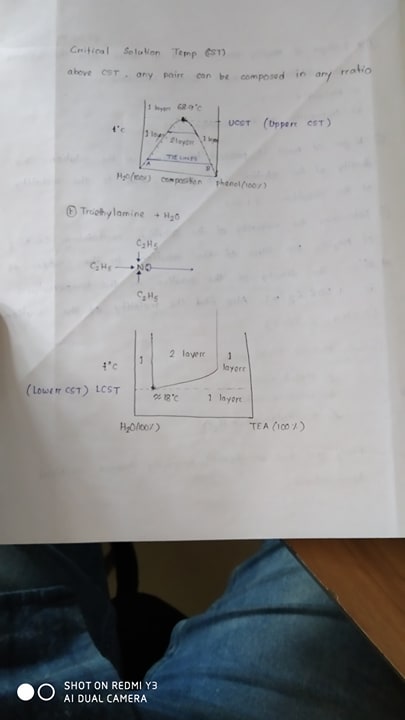 Critical Solution Temp (CST)
above CST, any pairs can be composed in any ratio
1 layer 68.9°C
UCST (Upper CST)
t°C
1 layer 2 layers 1 layer
Tie lines
A B
H₂O(100%) composition phenol(100%)
Triethylamine + H₂O
C₂H₅
C₂H₅ N
C₂H₅
1 2 layers 1 layers
t°C
(Lower CST) LCST
≈ 18°C 1 layers
H₂O(100%) TEA (100%)
SHOT ON REDMI Y3
AI DUAL CAMERA